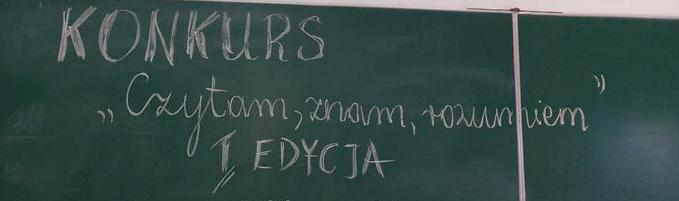 KONKURS
„Czytam, znam, rozumiem”
I EDYCJA